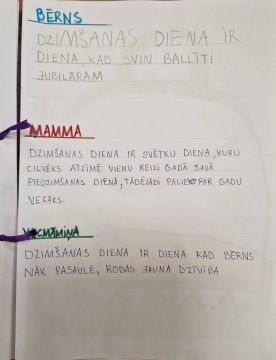 BĒRNS
DZIMŠANAS DIENA IR
DIENA, KAD SVIN BALLĪTI
JUBILĀRAM
MAMMA
DZIMŠANAS DIENA IR SVĒTKU DIENA, KURU
CILVĒKS ATZĪMĒ VIENU REIZI GADĀ SAVĀ
PIEDZIMŠANAS DIENĀ, TĀDĒJĀDI PALIEKOT PAR GADU
VECĀKS.
VECMĀMIŅA
DZIMŠANAS DIENA IR DIENA KAD BĒRNS
NĀK PASAULĒ, RODAS JAUNA DZĪVĪBA